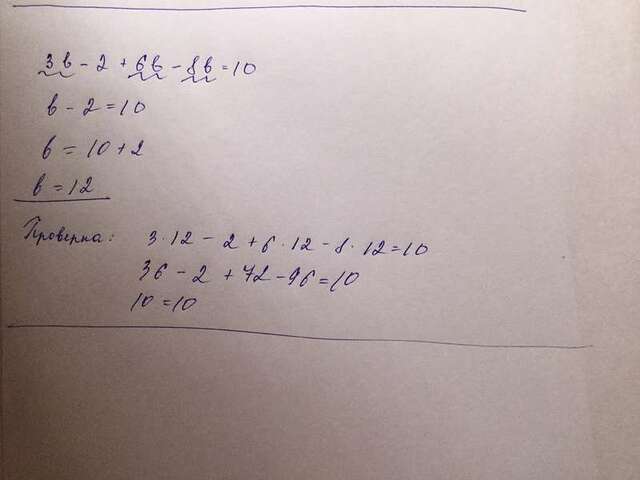 3в - 2 + 6в - 8в = 10
в - 2 = 10
в = 10 + 2
в = 12
Проверка: 3 · 12 - 2 + 6 · 12 - 8 · 12 = 10
36 - 2 + 72 - 96 = 10
10 = 10